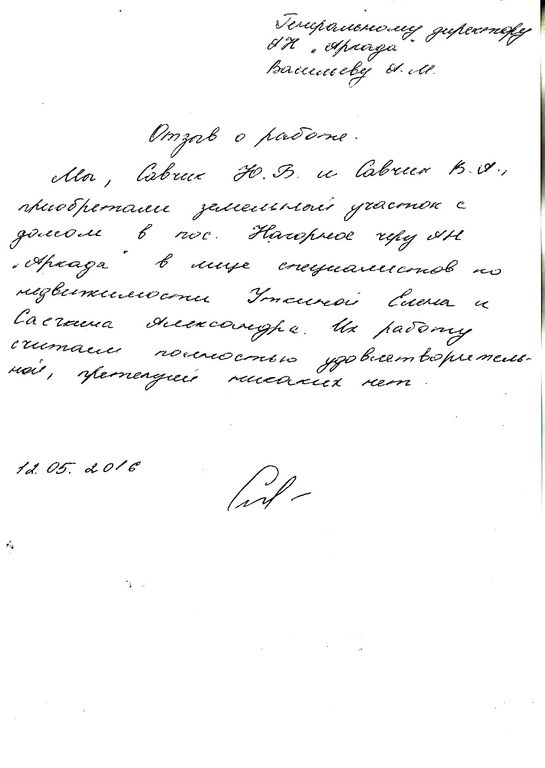 Генеральному директору
АН "Аркада"
Васильеву А.М.
Отзыв о работе.
Мы, Савчик Ю.В. и Савчик В.А.,
приобретали земельный участок с
домом в пос. Нагорное через АН
"Аркада" в лице специалистов по
недвижимости Уткиной Елена и
Саечкина Александра. Их работу
считаем полностью удовлетворитель-
ной, претензий никаких нет.
12.05.2016